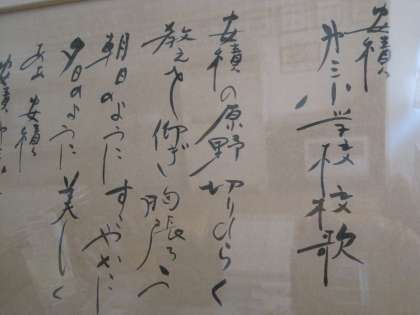 安積
第三小学校校歌
安積の原野切りひらく
教えを仰ぎ胸張ろう
朝日のようにすこやかに
夕日のように美しく
ああ安積
安積第三